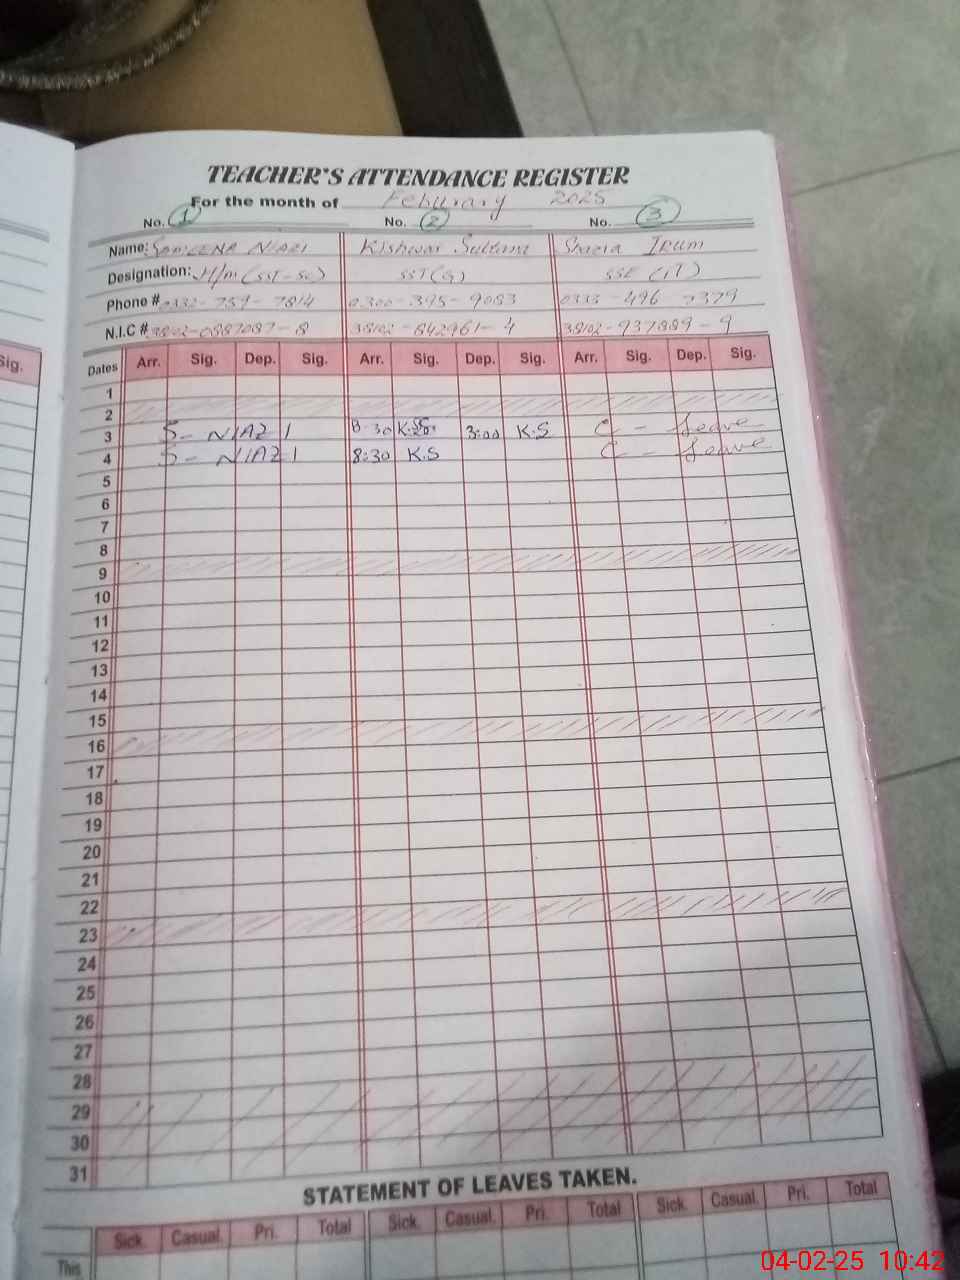 TEACHER'S ATTENDANCE REGISTER
For the month of Feburary 2025
No. 1 No. 2 No. 3
Name: SAMEENA NIAZI Kishwar Sultana Shazia IRUM
Designation: H/m (SST-SC) SST(G) SSE (IT)
Phone # 0332-759-7814 0300-395-9083 0333-496 7379
N.I.C # 38102-0887087-8 38102-842961-4 38102-937889-9
Sig.
Dates Arr. Sig. Dep. Sig. Arr. Sig. Dep. Sig. Arr. Sig. Dep. Sig.
1
2
3 S-NIAZI 8-30 K.S 3:00 K.S C - Leave
4 S-NIAZI 8:30 K.S C - Leave
5
6
7
8
9
10
11
12
13
14
15
16
17
18
19
20
21
22
23
24
25
26
27
28
29
30
31
STATEMENT OF LEAVES TAKEN.
Sick. Casual. Pri. Total Sick. Casual. Pri. Total Sick. Casual. Pri. Total
This
04-02-25 10:42